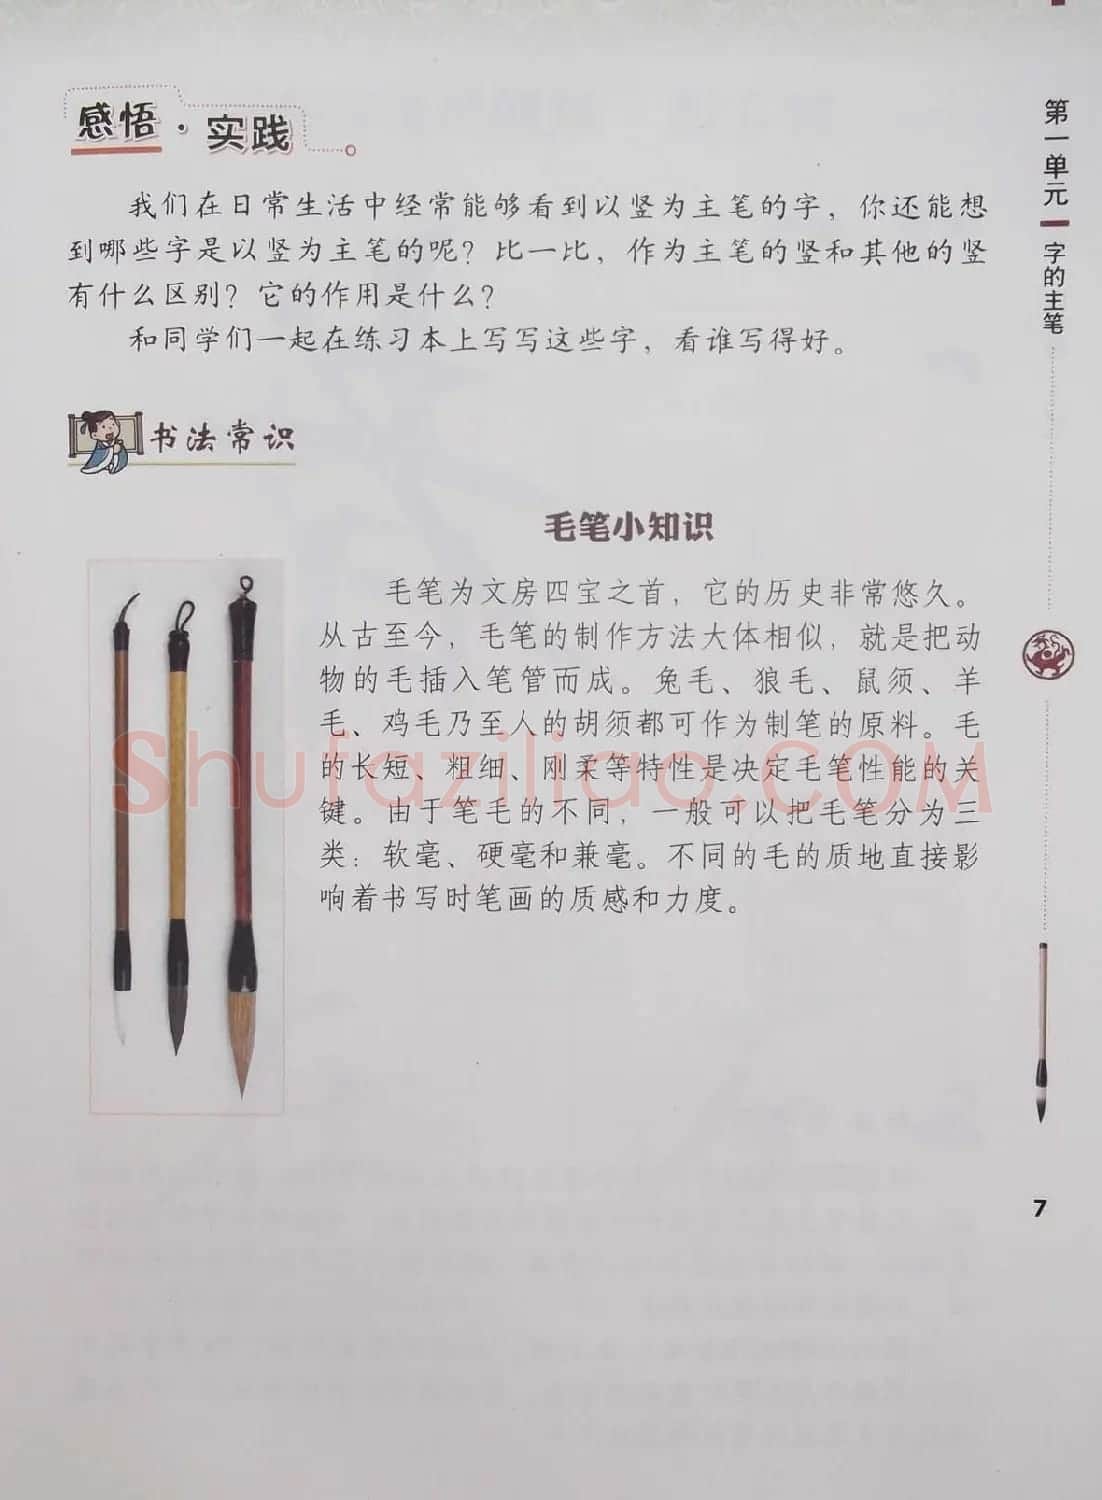 感悟·实践
我们在日常生活中经常能够看到以竖为主笔的字，你还能想
到哪些字是以竖为主笔的呢？比一比，作为主笔的竖和其他的竖
有什么区别？它的作用是什么？
和同学们一起在练习本上写写这些字，看谁写得好。
书法常识
毛笔小知识
毛笔为文房四宝之首，它的历史非常悠久。
从古至今，毛笔的制作方法大体相似，就是把动
物的毛插入笔管而成。兔毛、狼毛、鼠须、羊
毛、鸡毛乃至人的胡须都可作为制笔的原料。毛
的长短、粗细、刚柔等特性是决定毛笔性能的关
键。由于笔毛的不同，一般可以把毛笔分为三
类：软毫、硬毫和兼毫。不同的毛的质地直接影
响着书写时笔画的质感和力度。
Shufaziliao.COM
第一单元
字的主笔
7